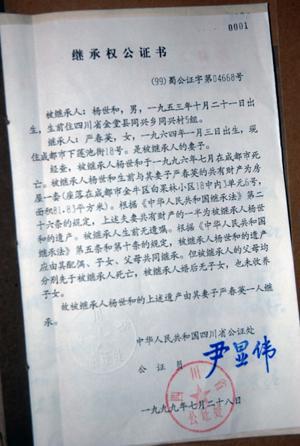 0001
继承权公证书
(99)蜀公证字第04668号
被继承人：杨世和，男，一九五三年十月二十一日出
生，生前住四川省金堂县同兴乡同兴村5组。
继承人：严春英，女，一九六四年一月三日出生，现
住成都市下莲池街18号。是被继承人的妻子。
经查，被继承人杨世和于一九九六年七月在成都市死
亡。被继承人杨世和生前与其妻子严春英的共有财产为房
屋一套(座落在成都市金牛区白果林小区18中内1单元6号，房
屋面积81.83平方米)。根据《中华人民共和国继承法》第二
十六条的规定，上述夫妻共有财产的一半为被继承人杨世
和的遗产。被继承人生前无遗嘱。根据《中华人民共和国
继承法》第五条和第十条的规定，被继承人杨世和的遗产
应由其配偶、子女、父母共同继承。但被继承人的父母均
分别先于被继承人死亡，被继承人婚后无子女，也未收养
子女。
故被继承人杨世和的上述遗产由其妻子严春英一人继
承。
中华人民共和国四川省公证处
公证员 尹显伟
一九九九年七月二十八日